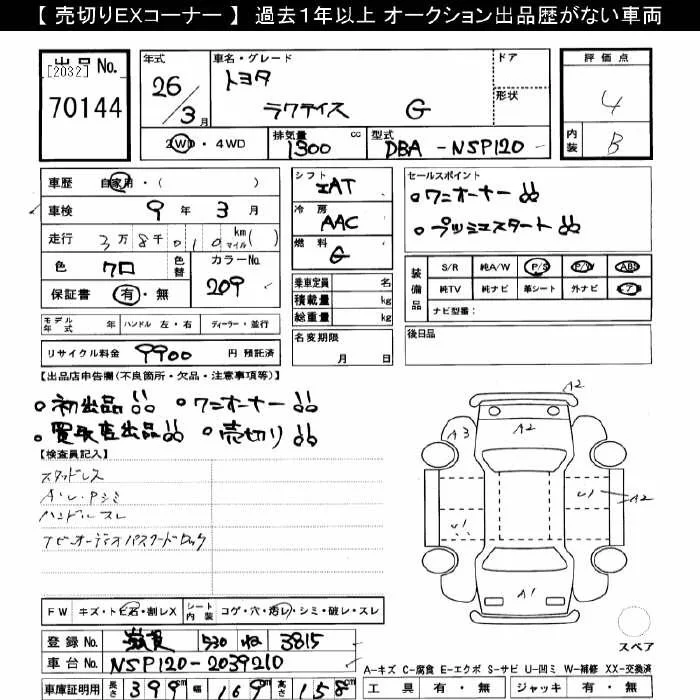 【 売切りEXコーナー 】 過去１年以上 オークション出品歴がない車両
出品 No.
[2032]
70144
年式
26
3月
車名・グレード
トヨタ
ラクティス G
ドア
形状
2WD・4WD
排気量 cc
1300
型式
DBA - NSP120
評価点
4
内装
B
車歴 自家用・( )
車検 9年 3月
走行 3万8千010 km マイル( )
色 クロ 色替 カラーNo. 209
保証書 有・無
シフト
IAT
冷房
AAC
燃料
G
セールスポイント
。ワンオーナー!!
。プッシュスタート!!
乗車定員 名
積載量 kg
総重量 kg
装備品
S/R 純A/W P/S P/W ABS
純TV 純ナビ 革シート 外ナビ エアB
ナビ型番：
モデル年式 年 ハンドル 左・右 ディーラー・並行
名変期限
月 日
後日品
リサイクル料金 9900 円 預託済
【出品店申告欄(不良箇所・欠品・注意事項等)】
。初出品!! 。ワンオーナー!!
。買取直出品!! 。売切り!!
【検査員記入】
スタッドレス
A・L・Pシミ
ハンドルスレ
ナビオーディオパスワードロック
A2
A2
A3
U1
U1
A2
A1
スペア
FW キズ・トビ石・割レX シート内装 コゲ・穴・汚レ・シミ・破レ・スレ
登録 No. 滋賀 530 ね 3815
車台 No. NSP120-2039210
車庫証明用 長さ 399cm 幅 169cm 高さ 158cm
A-キズ C-腐食 E-エクボ S-サビ U-凹ミ W-補修 XX-交換済
工具 有・無 ジャッキ 有・無